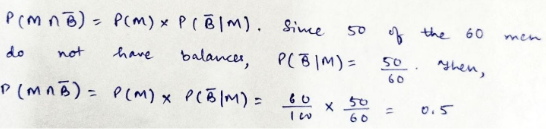 P(M ∩ B̅) = P(M) × P(B̅|M). Since 50 of the 60 men
do not have balances, P(B̅|M) = 50/60. Then,
P(M ∩ B̅) = P(M) × P(B̅|M) = 60/100 × 50/60 = 0.5